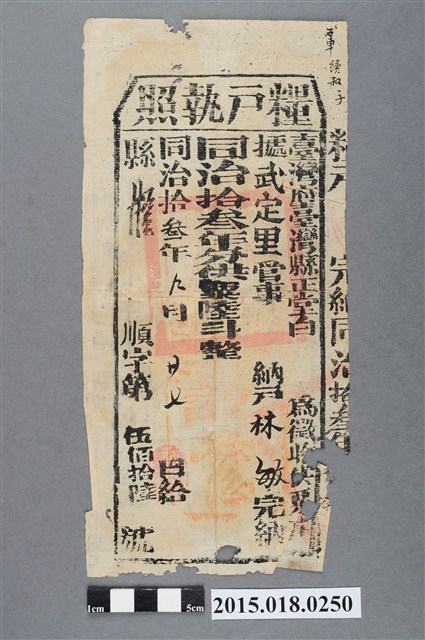 糧戶執照
臺灣府臺灣縣正堂白 為徵收供粟
據武定里管事 納戶林 敏完納
同治拾叁年分供粟陸斗 整
同治拾叁年 九 月 日給
縣
順字第 伍佰拾陸 號
糧戶 完納同治拾叁
1cm
5cm
2015.018.0250